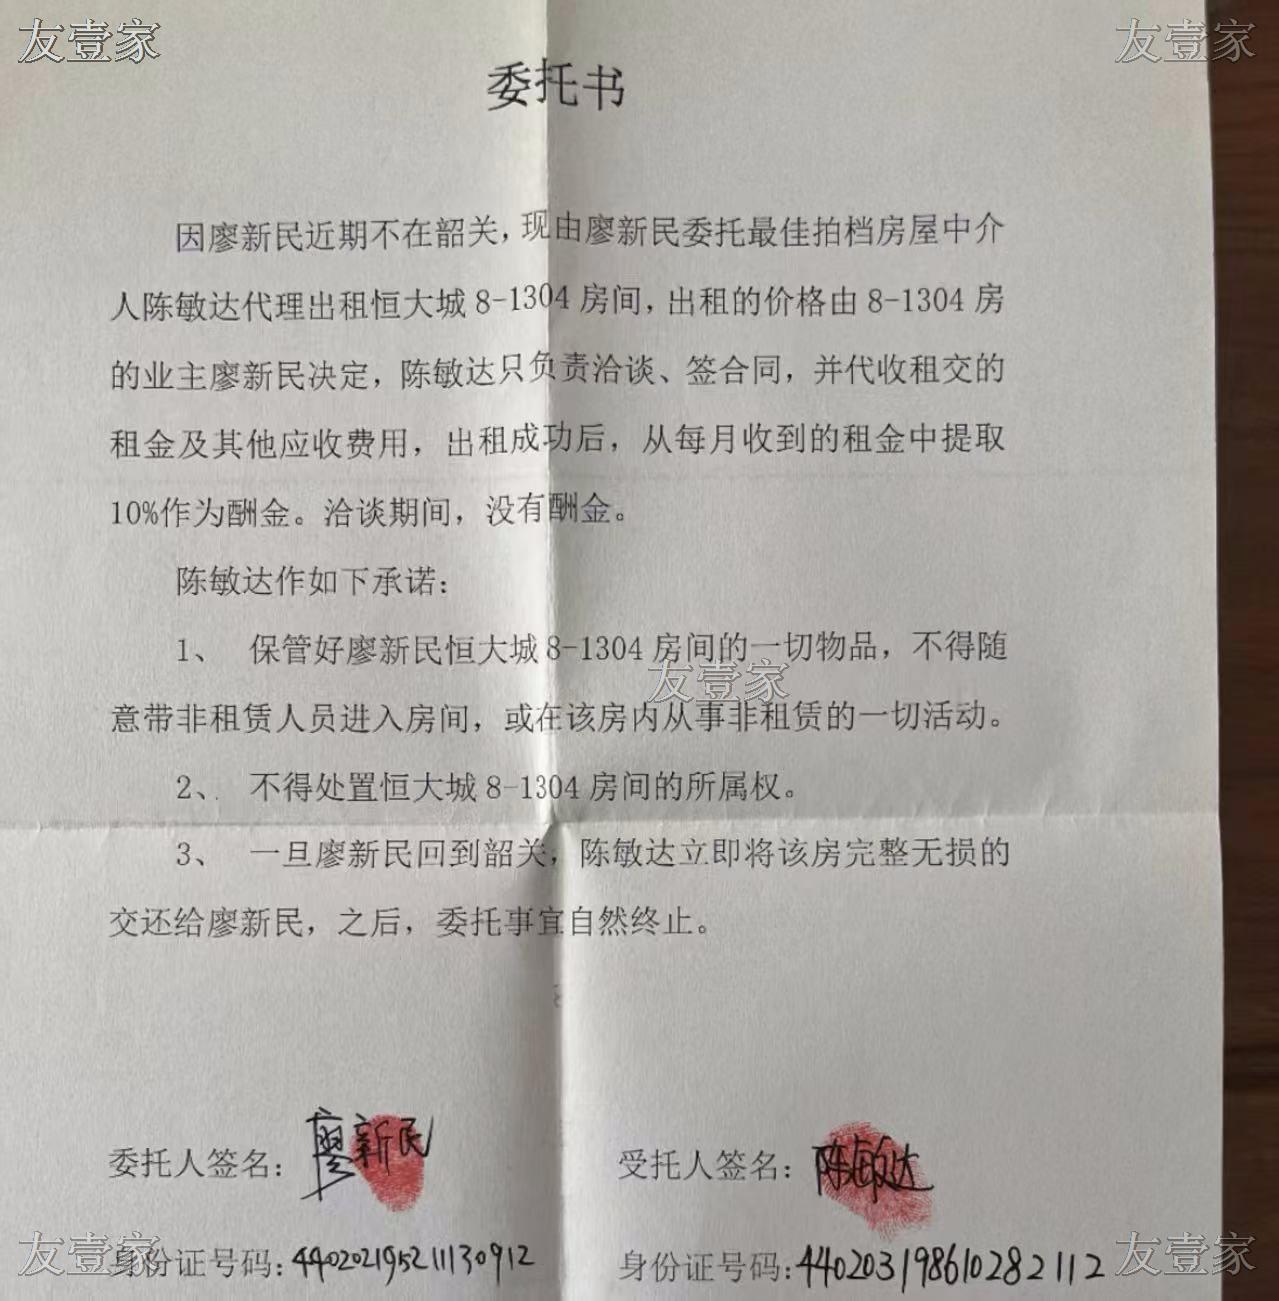 友壹家 友壹家
委托书
因廖新民近期不在韶关，现由廖新民委托最佳拍档房屋中介
人陈敏达代理出租恒大城8-1304房间，出租的价格由8-1304房
的业主廖新民决定，陈敏达只负责洽谈、签合同，并代收租交的
租金及其他应收费用，出租成功后，从每月收到的租金中提取
10%作为酬金。洽谈期间，没有酬金。
陈敏达作如下承诺：
1、 保管好廖新民恒大城8-1304房间的一切物品，不得随
友壹家
意带非租赁人员进入房间，或在该房内从事非租赁的一切活动。
2、 不得处置恒大城8-1304房间的所属权。
3、 一旦廖新民回到韶关，陈敏达立即将该房完整无损的
交还给廖新民，之后，委托事宜自然终止。
委托人签名：廖新民 受托人签名：陈敏达
身份证号码：440202195211130912 身份证号码：440203198610282112
友壹家 友壹家